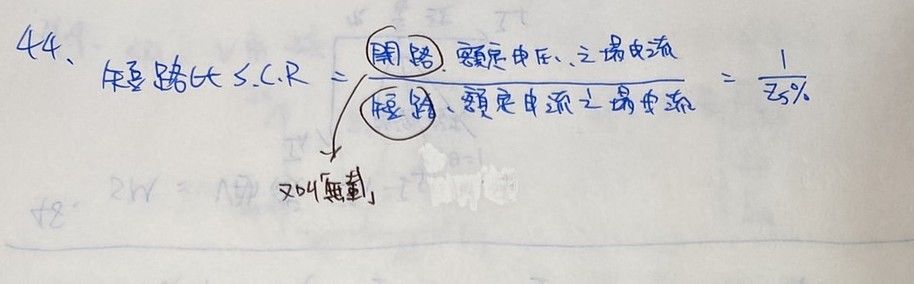 44、
短路比 S.C.R = 開路、額定電压、之場电流 / 短路、額定电流之場电流 = 1 / Zs%
又叫「無載」